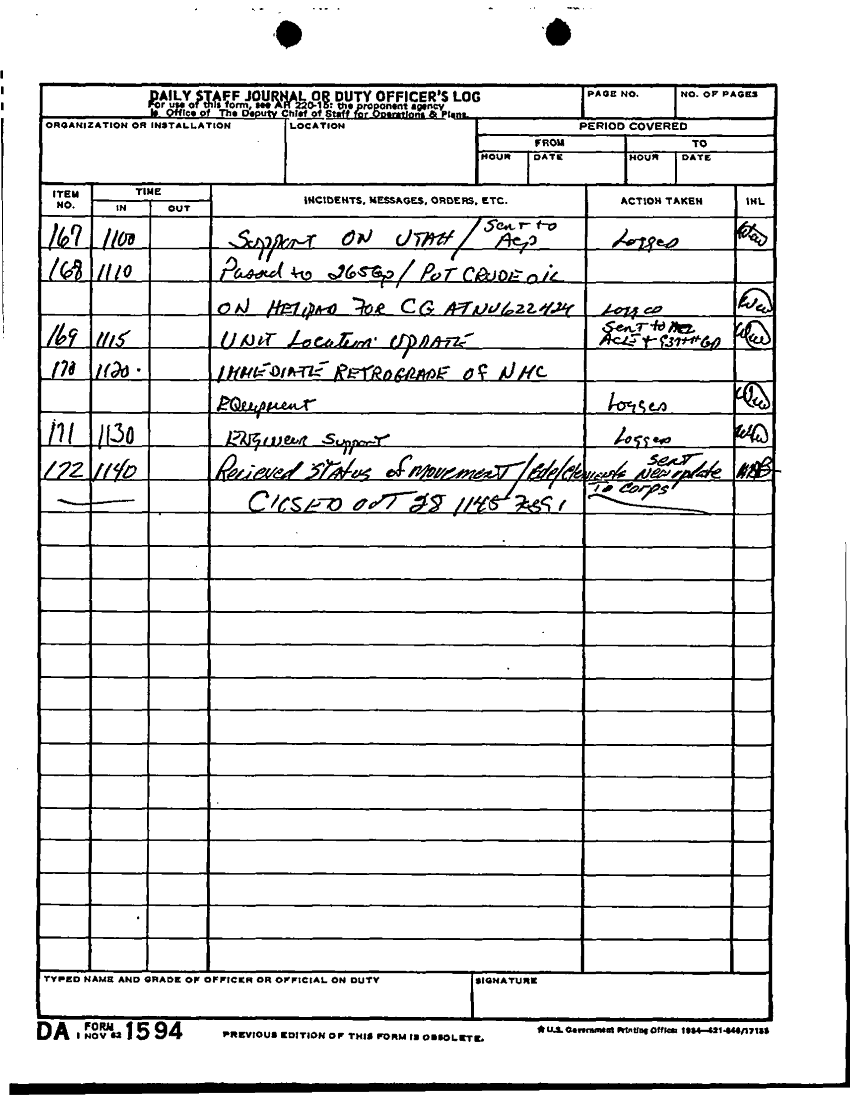 DAILY STAFF JOURNAL OR DUTY OFFICER'S LOG
For use of this form, see AR 220-15: the proponent agency
is Office of The Deputy Chief of Staff for Operations & Plans.
PAGE NO.
NO. OF PAGES
ORGANIZATION OR INSTALLATION
LOCATION
PERIOD COVERED
FROM
TO
HOUR
DATE
HOUR
DATE
ITEM NO.
TIME
IN
OUT
INCIDENTS, MESSAGES, ORDERS, ETC.
ACTION TAKEN
INL
167 1100 Support ON UTAH / Sent to Logged
168 1110 Passed to 265Gp / PUT CRUDE OIL
ON HELIPAD FOR CG AT NU622424 Logged
169 1115 UNIT Location UPDATE Sent to
ACE + 937th GP
170 1120 IMMEDIATE RETROGRADE OF NMC
EQuipment Logged
171 1130 ENgineer Support Logged
172 1140 Recieved STATUS of movement / Bde/Elements sent
To Corps
ClOSED OUT 28 1145
TYPED NAME AND GRADE OF OFFICER OR OFFICIAL ON DUTY
SIGNATURE
DA FORM 1 NOV 62 1594
PREVIOUS EDITION OF THIS FORM IS OBSOLETE.
☆ U.S. Government Printing Office: 1984—421-646/17155